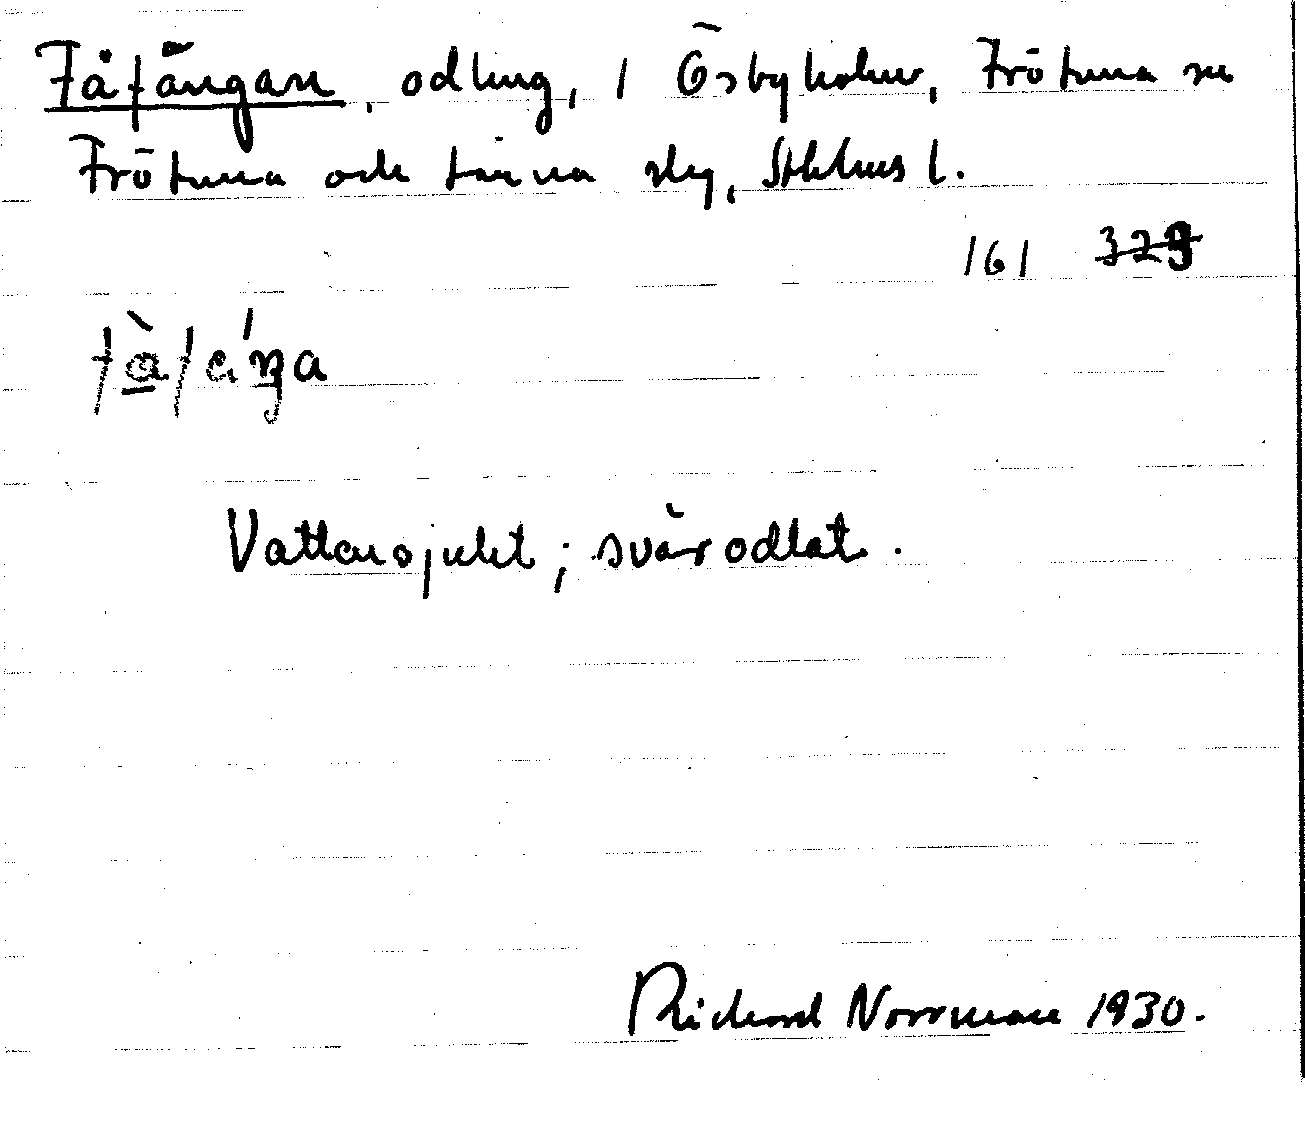 Fåfängan, odling, i Ösbyholm, Frötuna sn
Frötuna och Länna slg, Sthlms l.
161 329
Vattensjukt; svårodlat.
Richard Norrman 1930.